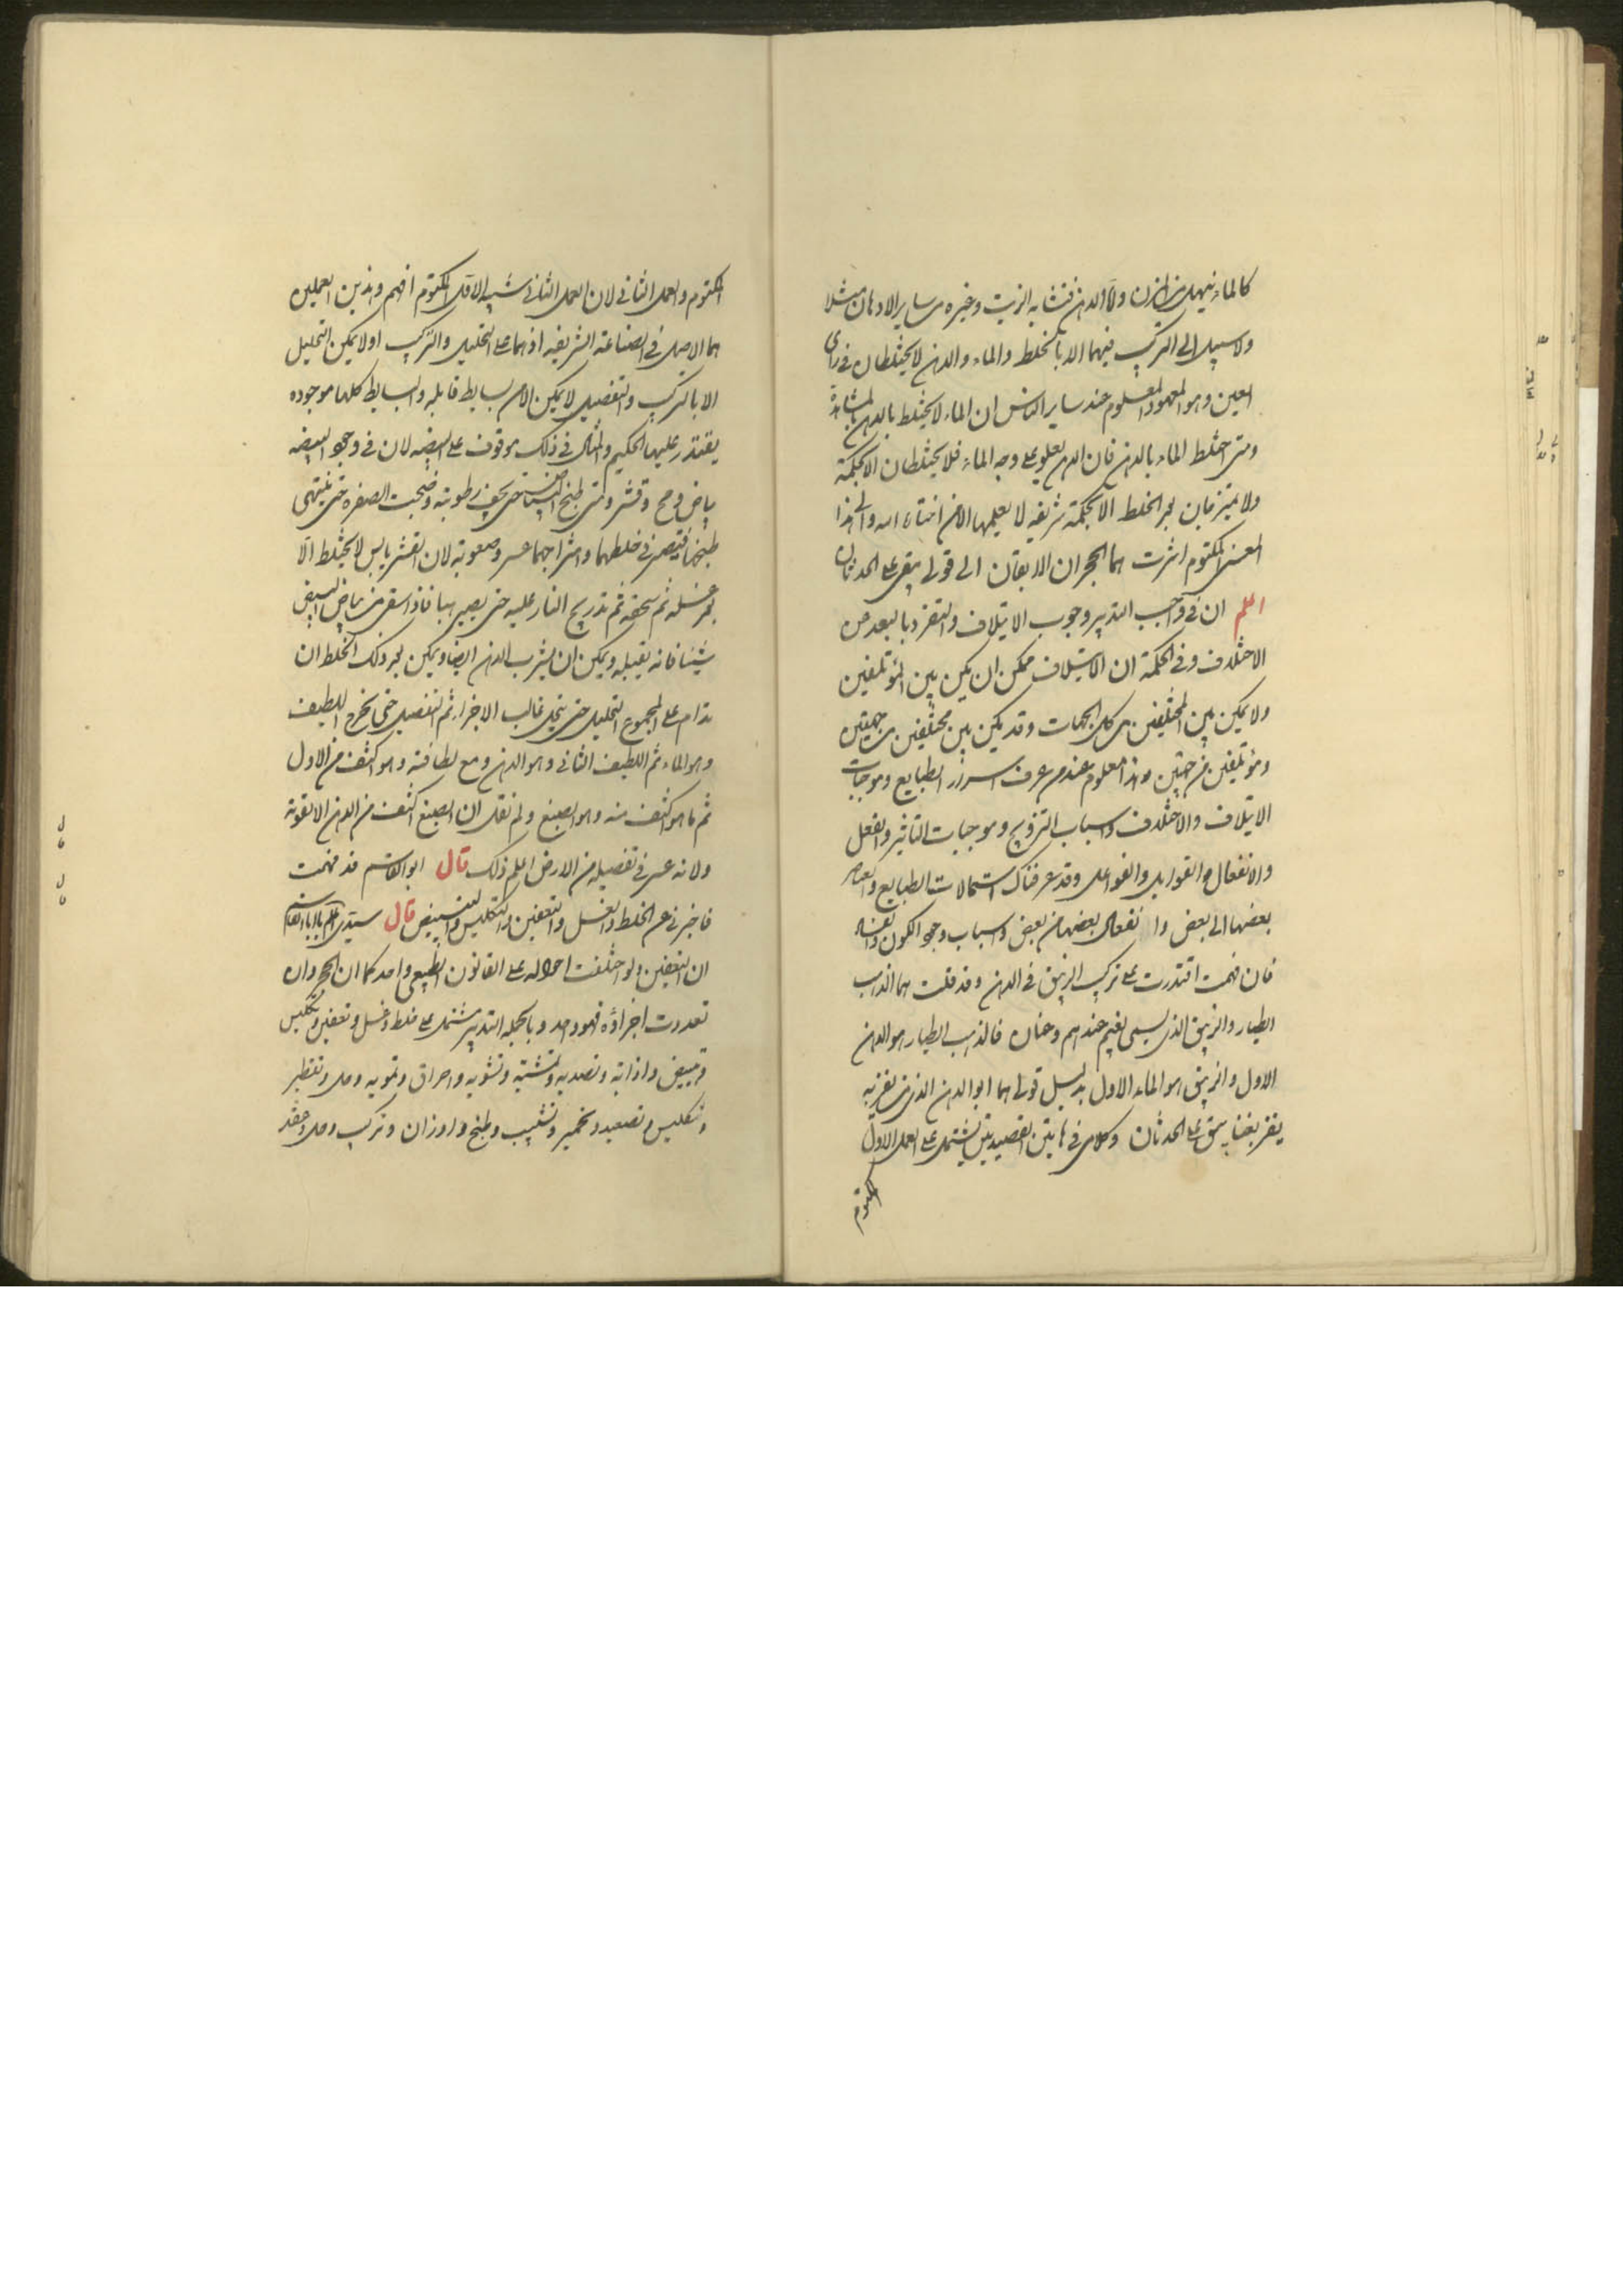 كالماء ينهل من المزن واما الدهن فتشابه الزيت وغيره من ساير الادهان مثلا
ولا سبيل الى التركيب فيهما الا بالخلط والماء والدهن لا يختلطان في راى
العين وهو المعهود المعلوم عند ساير الناس ان الماء لا يختلط بالدهن بالمشاهدة
ومتى اختلط الماء بالدهن فان الدهن يعلو على وجه الماء فلا يختلطان الا بحكمة
ولا يمتزجان بعد الخلط الا بحكمة شريفه لا يعلمها الا من اختاره الله والى هذا
المعنى المكتوم اشرت هما الحجران الابقان الى قولي يبقى على الحدثان
اعلم ان في واجب التدبير وجوب الايتلاف والتفرد بالبعد عن
الاختلاف وفي الحكمة ان الايتلاف ممكن ان يكون بين المؤتلفين
ولا يمكن بين المختلفين من كل الجهات وقد يكون بين مختلفين من جهتين
ومؤتلفين من جهتين وهذا معلوم عند من عرف اسرار الطبايع وموجبات
الايتلاف والاختلاف واسباب التزويج وموجبات التاثير والفعل
والانفعال والقوابل والفواعل وقد عرفناك استحالات الطبايع والعناصر
بعضها الى بعض وانفعال بعضها من بعض واسباب وجود الكون والفساد
فان فهمت اقتدرت على تركيب الزيبق في الدهن وقد قلت هما الذهب
الطيار والزيبق الذي يسمى لغيم عندهم ودخان فالذهب الطيار هو الدهن
الاول والزيبق هو الماء الاول بدليل قولي هما ابو الدهن الذي من يفز به
يفز بغنا يبقى على الحدثان وكلامي في هاتين القصيدتين يشتمل على العمل الاول
المكتوم
المكتوم والعمل الثاني لان العمل الثاني شبيه الاول المكتوم افهم وهذين العملين
هما الاصل في الصناعة الشريفه اذ هما على التحليل والتركيب اولا يمكن التحليل
الا بالتركيب والتفصيل لا يمكن الا من بسايط قابله والبسايط كلها موجوده
يقتدر عليها الحكيم والمثال في ذلك موقوف على البيضه لان في وجود البيضه
بياض ومح وقشر ومتى طبخ البياض حتى يجف رطوبته ونضجت الصفره حتى ينتهي
طبخها فيصير في خلطهما وامتزاجهما عسر وصعوبة لان القشر يابس لا يختلط الا
بعد غسله ثم سحقه ثم تدريج النار عليه حتى يصير هبا فاذا سقى من بياض البيض
شيئا فانه يقبله ويمكن ان يشرب الدهن ايضا ويمكن بعد ذلك الخلط ان
تدام على المجموع التحليل حتى ينحل غالب الاجزاء ثم التفصيل حتى يخرج اللطيف
وهو الماء ثم اللطيف الثاني وهو الدهن ومع لطافته وهو اكثف من الاول
ثم ما هو اكثف منه وهو الصبغ ولم نقل ان الصبغ اكثف من الدهن الا لقوته
ولانه عسر في تفصيله من الارض اعلم ذلك قال ابو القاسم قد فهمت
فاخبرني عن الخلط والغسل والتعفين والتكليس والتبييض قال سيدي اعلم يا ابا القاسم
ان التعفين ولو اختلفت احواله على القانون الطبيعي واحد كما ان الحجر وان
تعددت اجزاؤه فهو واحد وبالجمله التدبير مشتمل على خلط وغسل وتعفين وتكليس
وتبييض واذابة وتصديه وتمشية وتشويه واحراق وتمويه وحل وتقطير
وتكليس وتصعيد وتخمير وتشبيب وطبخ واوزان وتركيب وحل وعقد